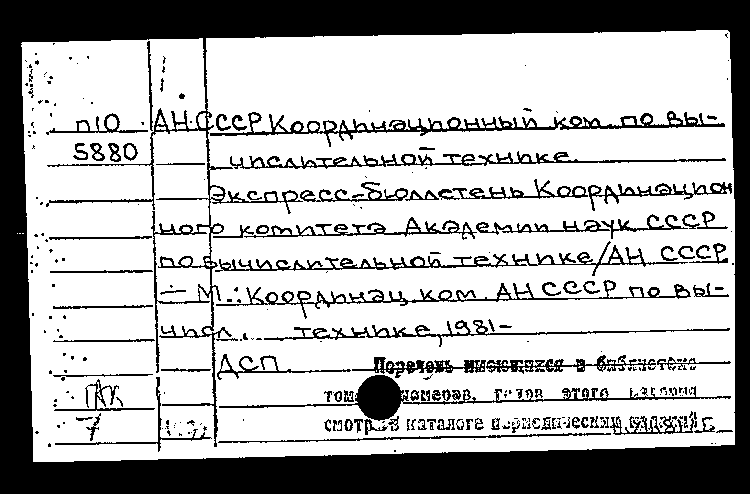 п10 АН СССР Координационный ком. по вы-
5880 числительной технике.
Экспресс-бюллетень Координацион
ного комитета Академии наук СССР
по вычислительной технике/АН СССР
– М.: Координац. ком. АН СССР по вы-
числ. технике, 1981–
ДСП Перечень имеющихся в библиотеке
номеров, этого издания
7 смотр в каталоге периодических изданий